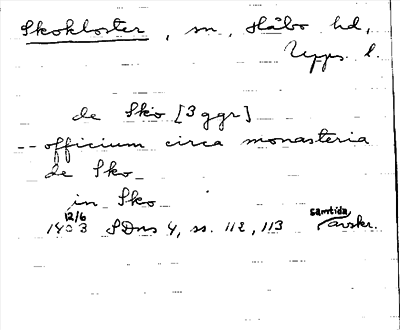 Skokloster, sn, Håbo hd,
Upps. l.
de Sko [3 ggr]
-- officium circa monasteria
de Sko -
in Sko
12/6 samtida
1403 SDns 4, ss. 112, 113 avskr.